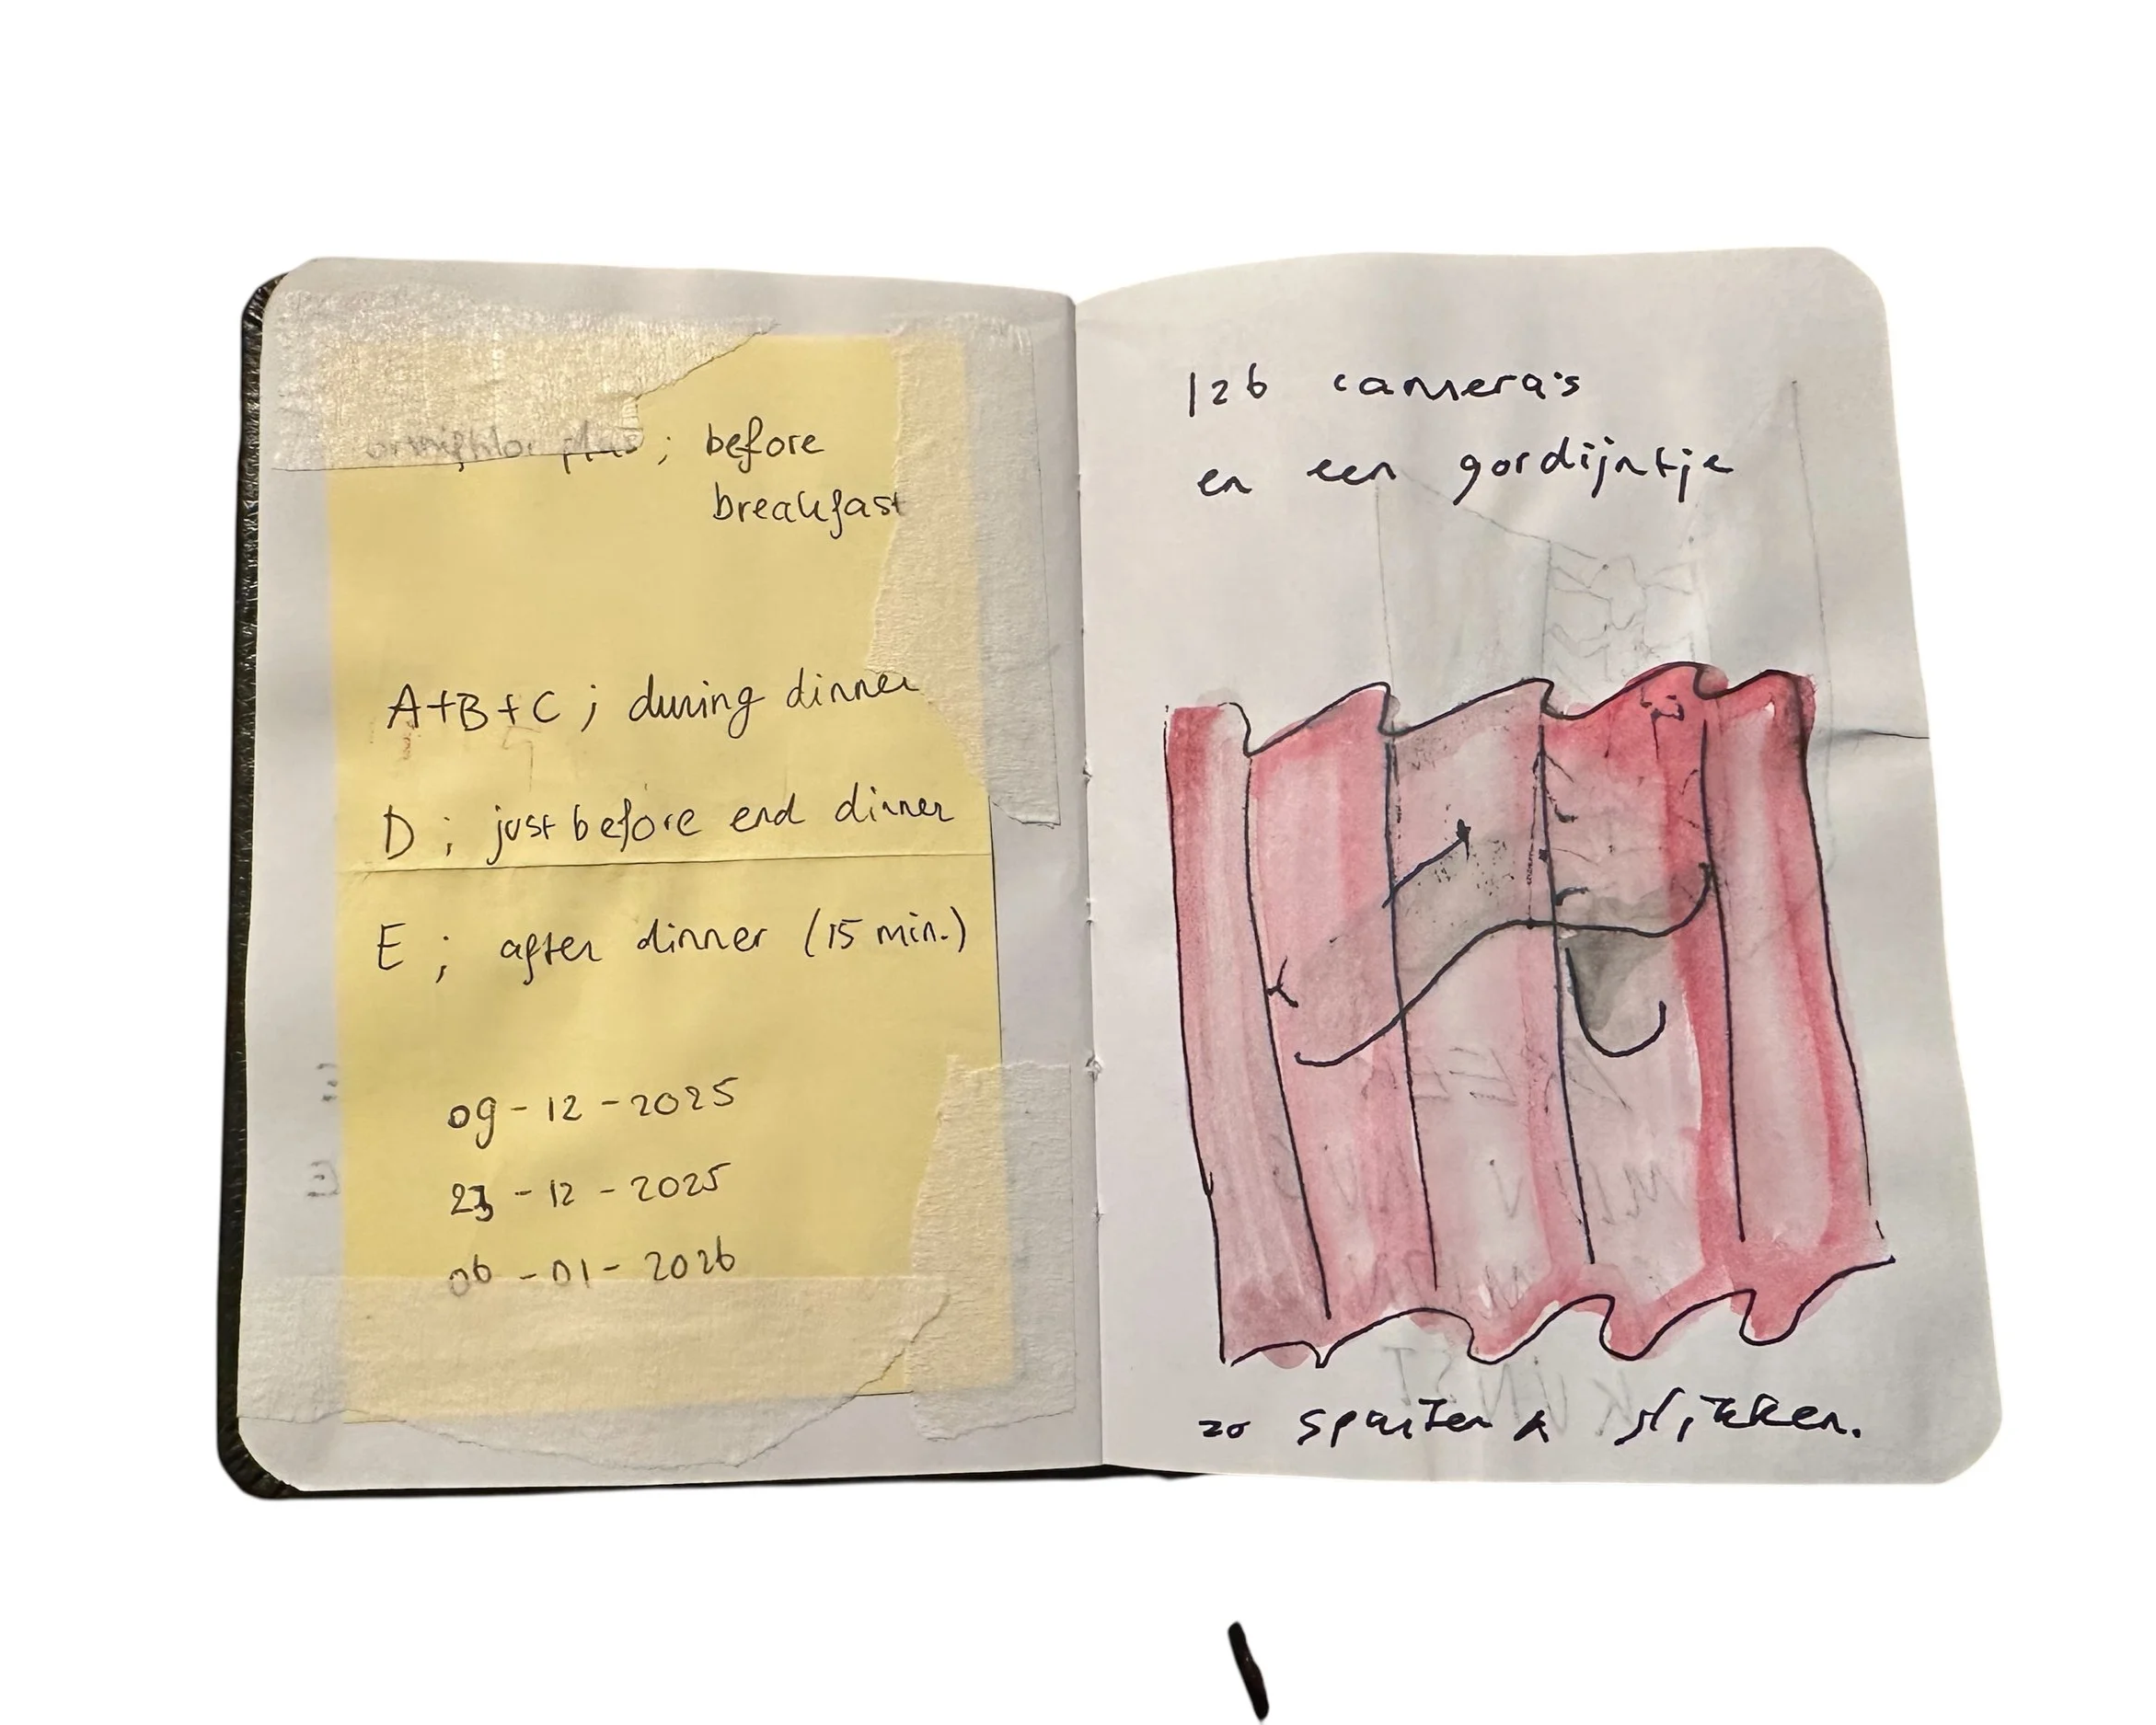 plus ; before
breakfast
A+B+C ; during dinner
D ; just before end dinner
E ; after dinner (15 min.)
09-12-2025
23-12-2025
06-01-2026
126 camera's
en een gordijntje
zo